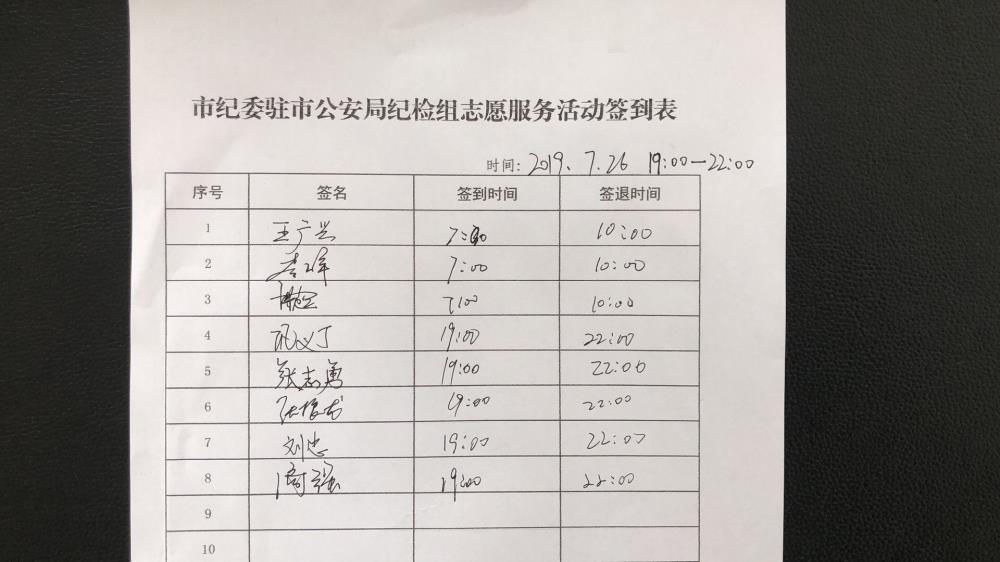 市纪委驻市公安局纪检组志愿服务活动签到表
时间：2019.7.26 19:00—22:00
序号 签名 签到时间 签退时间
1 王广兴 7:00 10:00
2 李峰 7:00 10:00
3 7:00 10:00
4 19:00 22:00
5 张志勇 19:00 22:00
6 19:00 22:00
7 刘忠 19:00 22:00
8 周强 19:00 22:00
9
10